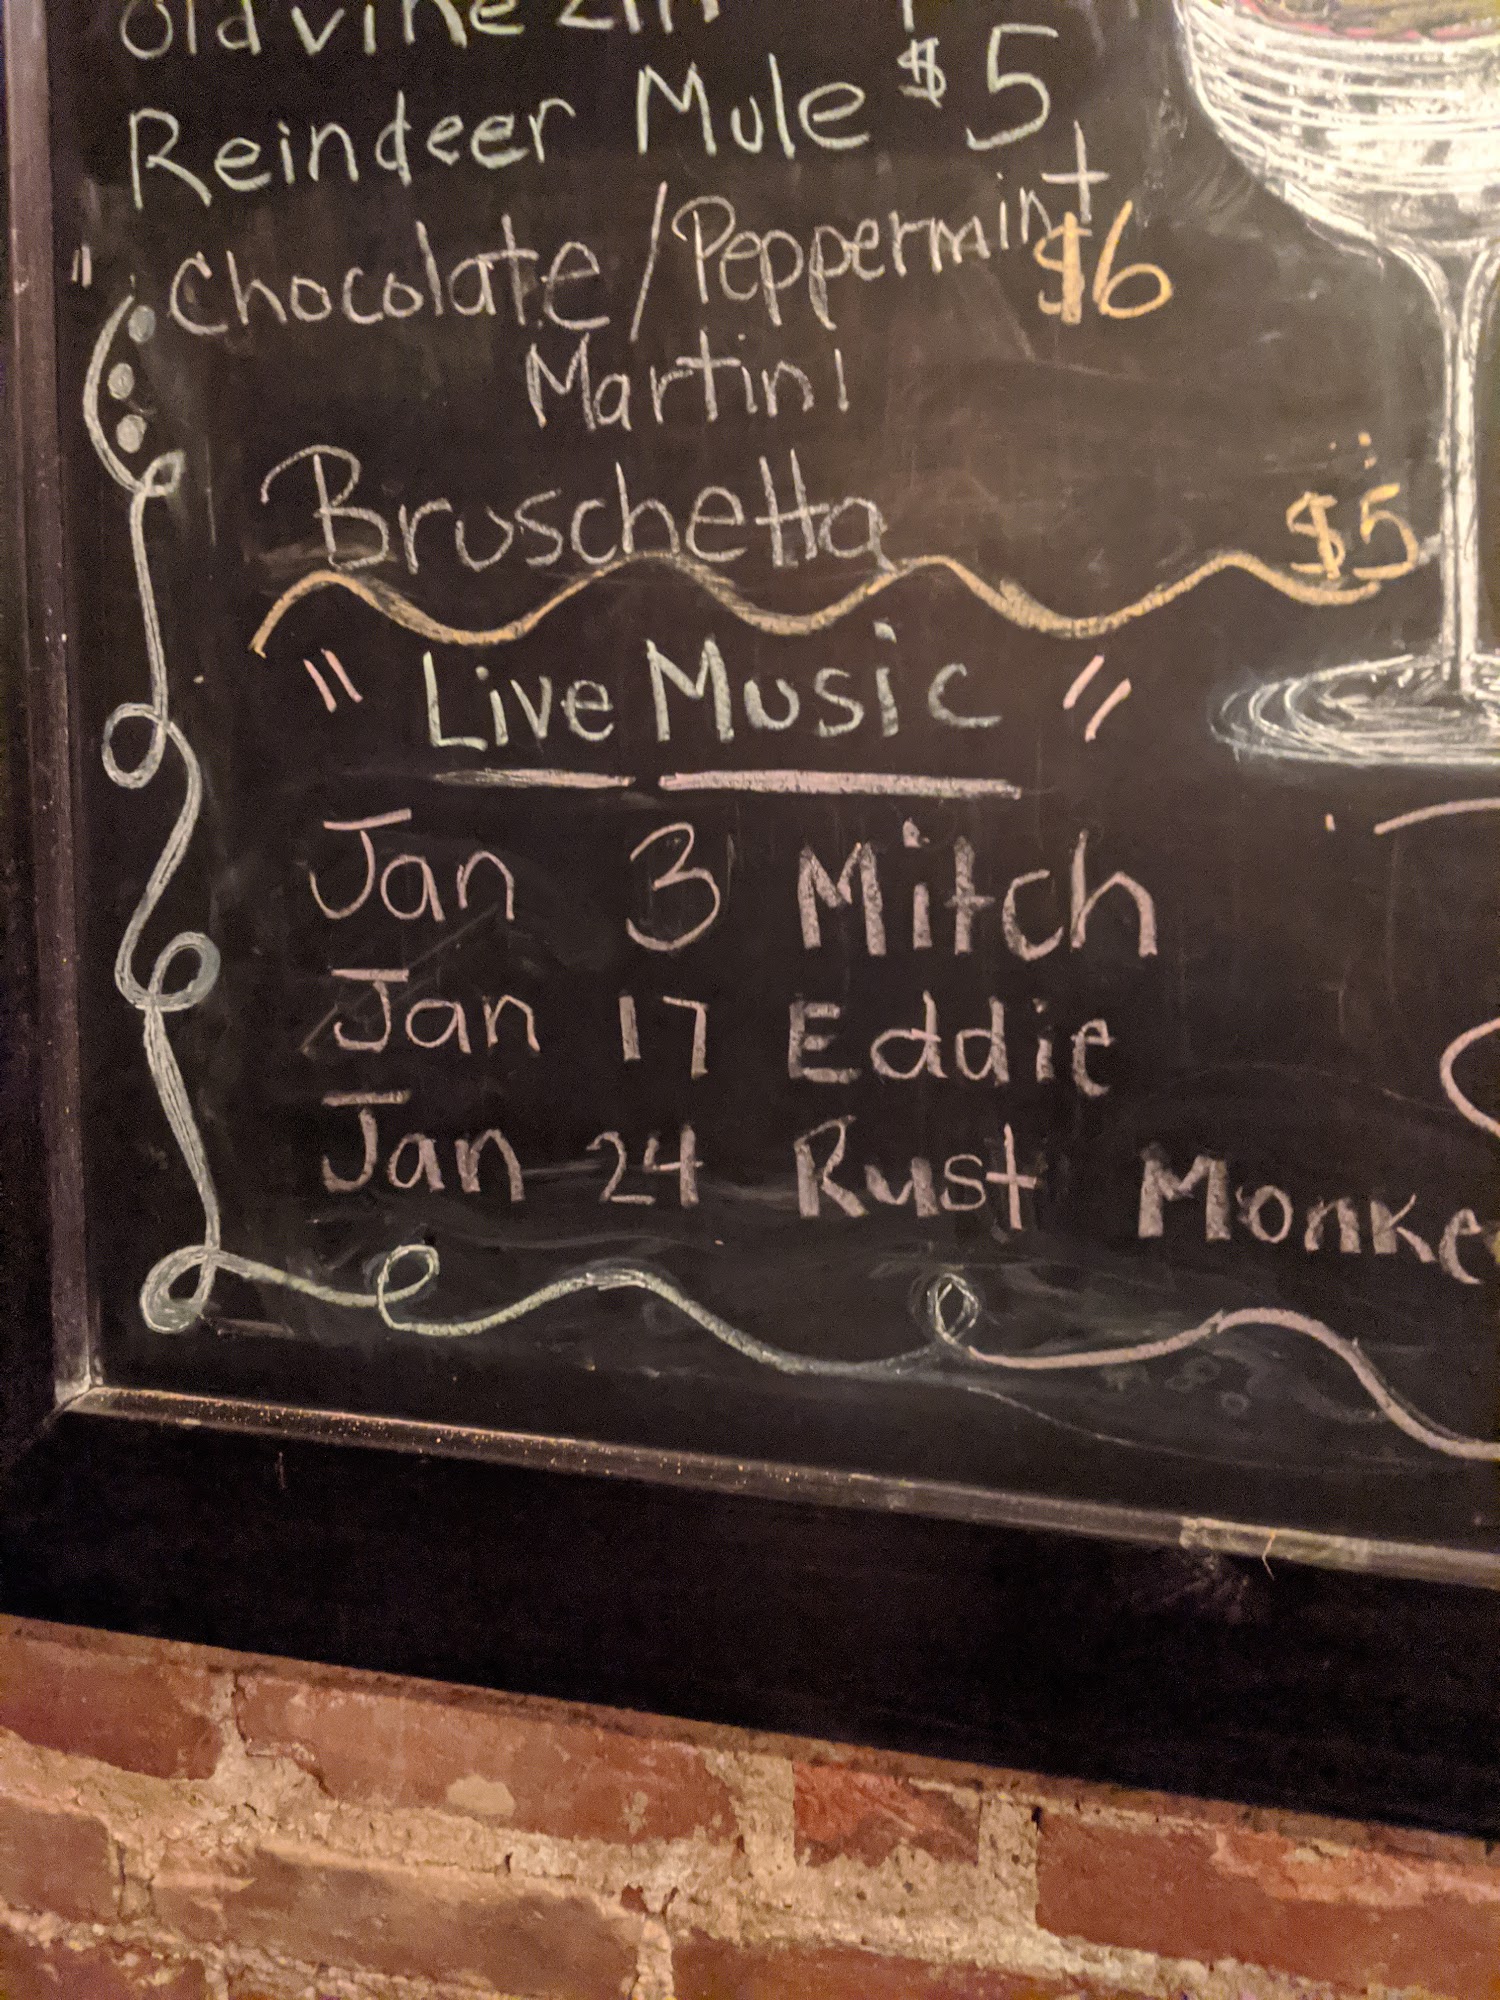 Old vine Zin
Reindeer Mule $5
Chocolate/Peppermint $6
Martini
Bruschetta $5
" Live Music "
Jan 3 Mitch
Jan 17 Eddie
Jan 24 Rust Monke